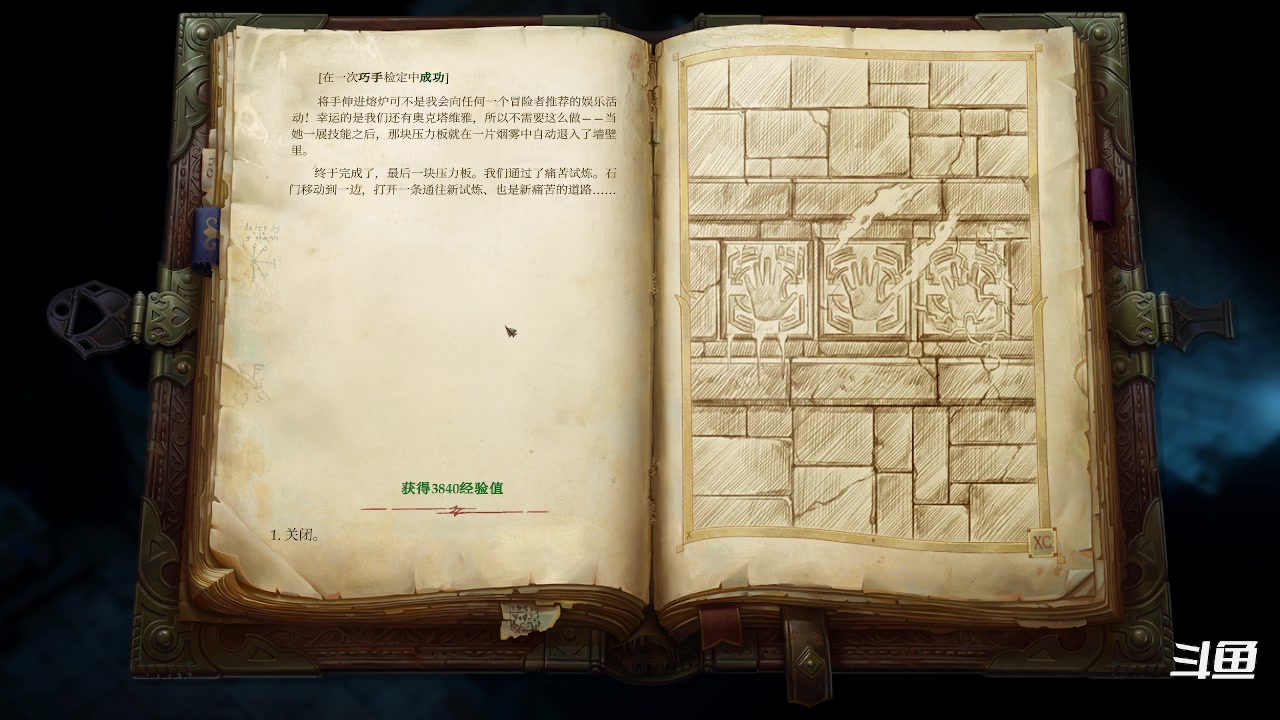 [在一次巧手检定中成功]
将手伸进熔炉可不是我会向任何一个冒险者推荐的娱乐活
动！幸运的是我们还有奥克塔维雅，所以不需要这么做——当
她一展技能之后，那块压力板就在一片烟雾中自动退入了墙壁
里。
终于完成了，最后一块压力板。我们通过了痛苦试炼。石
门移动到一边，打开一条通往新试炼、也是新痛苦的道路……
获得3840经验值
1. 关闭。
XC
斗鱼